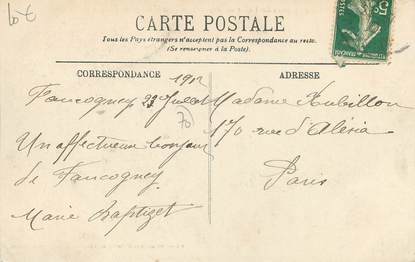 10€
CARTE POSTALE
Tous les Pays étrangers n'acceptent pas la Correspondance au recto.
(Se renseigner à la Poste).
CORRESPONDANCE
ADRESSE
1912
Faucogney 22 Juillet
Un affectueux bonjour
de Faucogney
Marie Baptizet
70
Madame Aubillon
170 rue d'Alésia
Paris